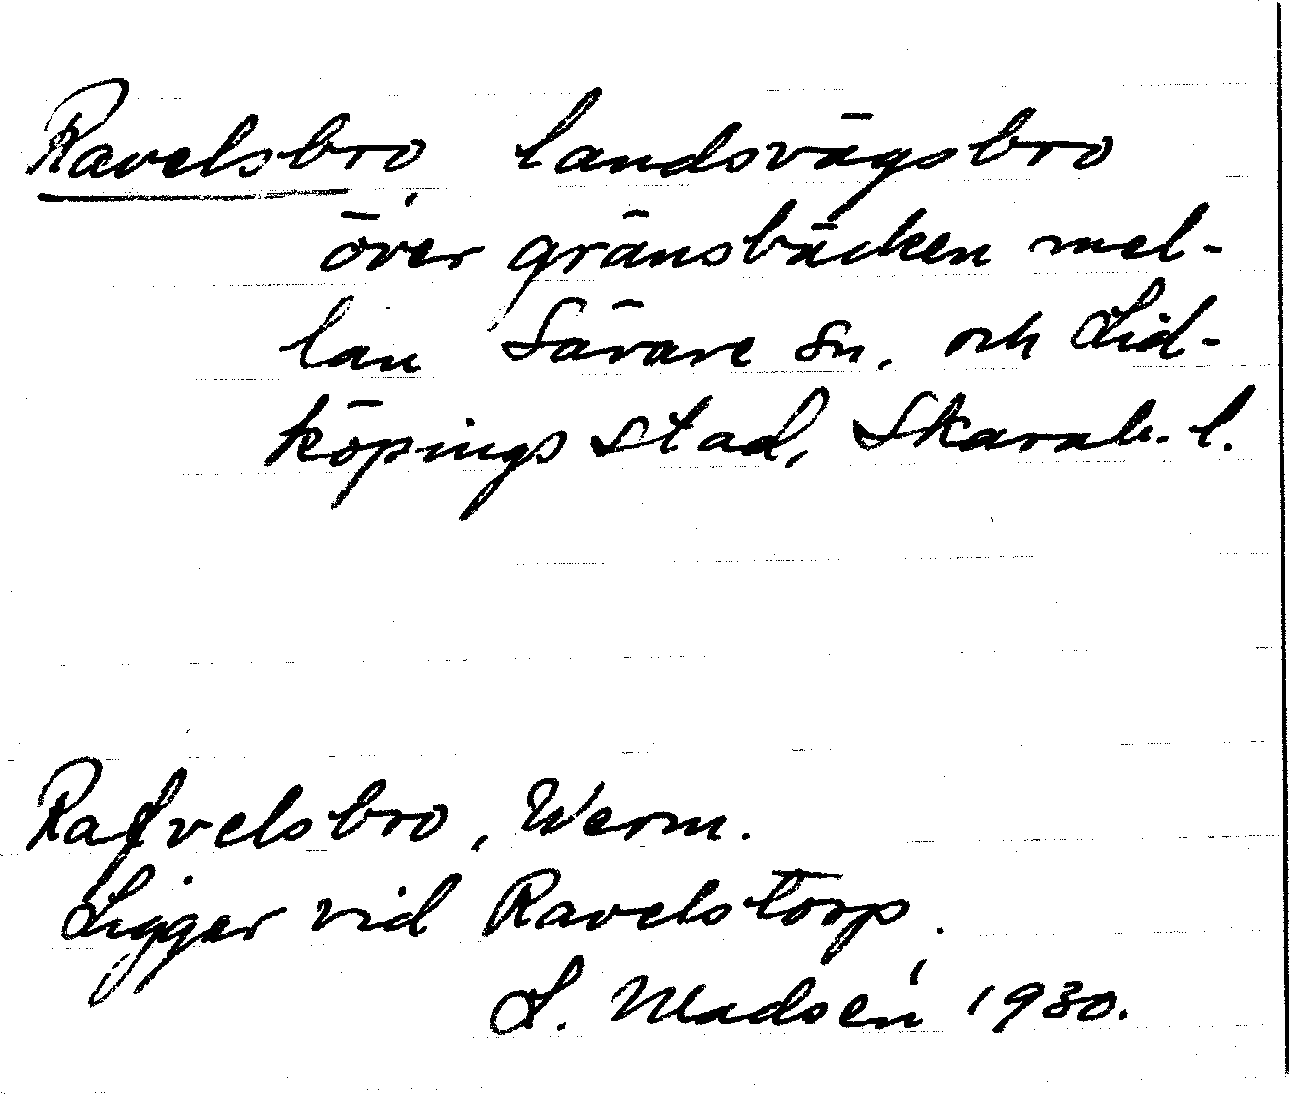 Ravelsbro, landsvägsbro
över gränsbäcken mel-
lan Sävare sn. och Lid-
köpings stad, Skarab. l.
Rafvelsbro, Werm.
Ligger vid Ravelstorp.
L. Madsén 1930.